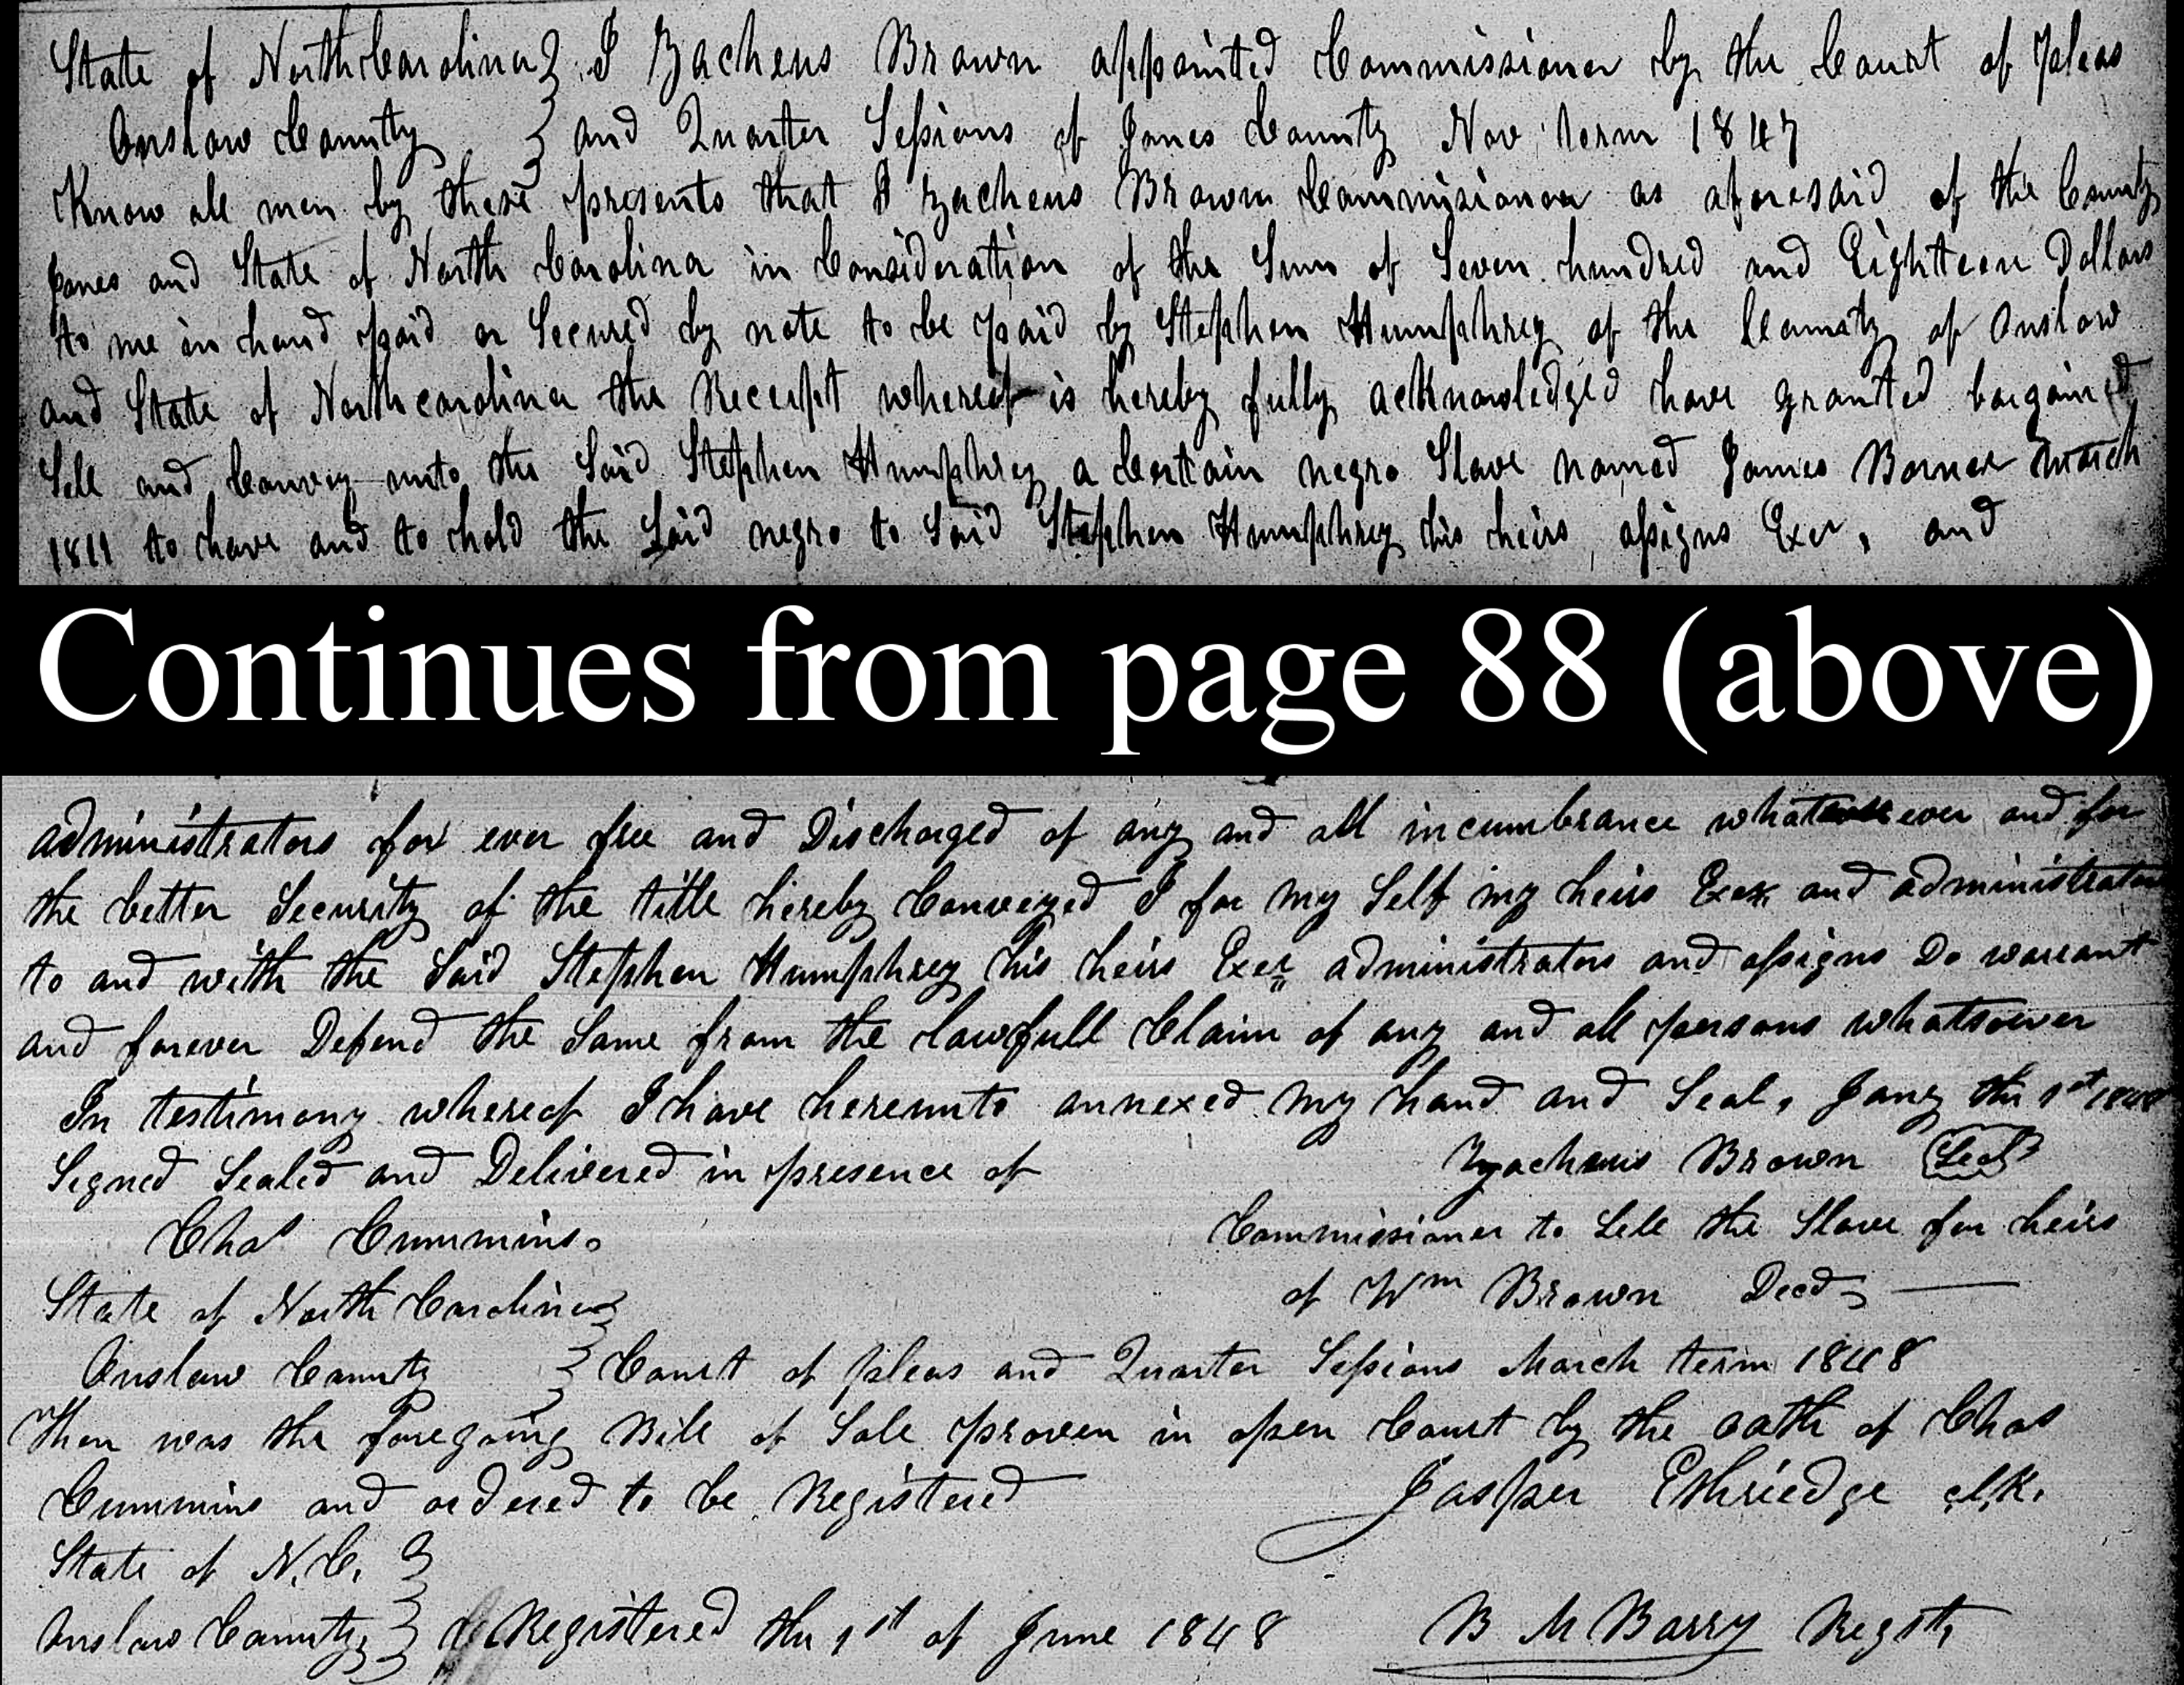 State of North Carolina } I Zacheus Brown appointed Commissioner by the Court of Pleas
Onslow County } and Quarter Sessions of Jones County Nov Term 1847
Know all men by these presents that I Zacheus Brown Commissioner as aforesaid of the County
Jones and State of North Carolina in Consideration of the Sum of Seven hundred and Eighteen Dollars
to me in hand paid or Secured by note to be paid by Stephen Humphrey of the County of Onslow
and State of North carolina the Receipt whereof is hereby fully acknowledged have granted bargained
Sell and Convey unto the Said Stephen Humphrey a Certain negro Slave named James Borned March
1811 to have and to hold the Said negro to Said Stephen Humphrey his heirs, assigns Exer, and
Continues from page 88 (above)
administrators for ever free and Discharged of any and all incumbrance what ever and for
the better Security of the title hereby Conveyed I for my Self my heirs Exer and administrators
to and with the Said Stephen Humphrey his heirs Exer administrators and assigns Do warrant
and forever Defend the Same from the lawfull Claim of any and all persons whatsoever
In testimony whereof I have hereunto annexed my hand and Seal, Jany the 1st 1848
Signed Sealed and Delivered in presence of Zacheus Brown Seal
Chas Cummins. Commissioner to Sell the Slave for heirs
State of North Carolina } of Wm Brown Decd
Onslow County } Court of Pleas and Quarter Sessions March term 1848
Then was the foregoing Bill of Sale proven in open Court by the oath of Chas
Cummins and ordered to be Registered Jasper Ethriedge clk.
State of N.C. }
Onslow County } Registered the 1st of June 1848 B M Barry Regst,